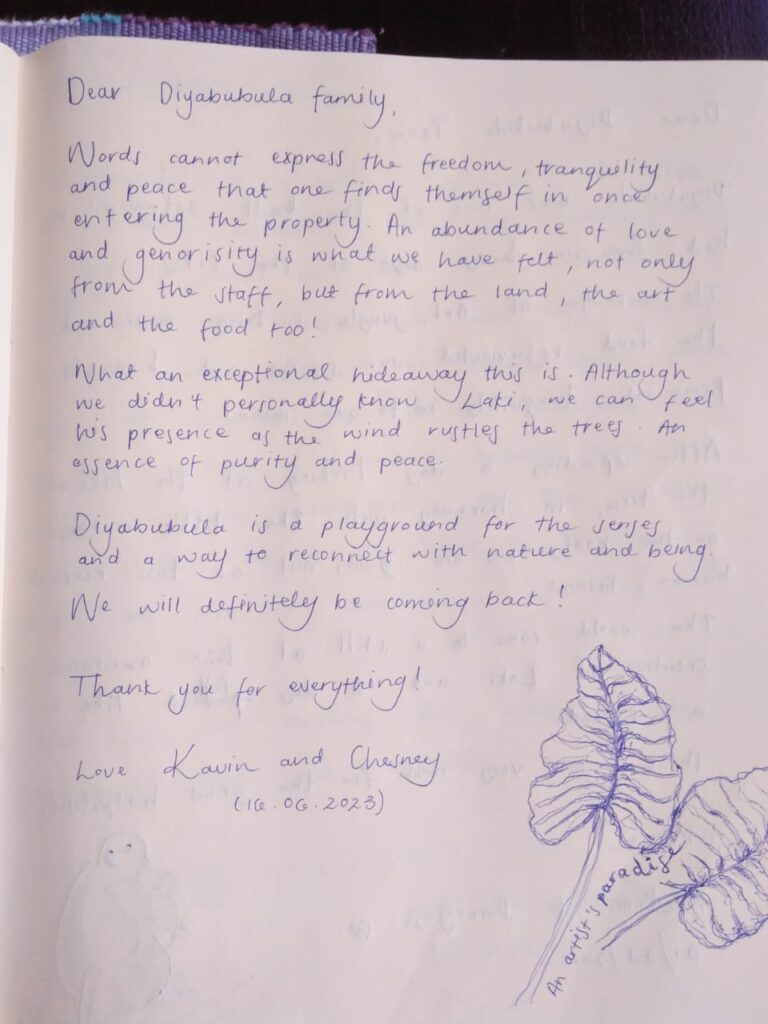 Dear Diyabubula family,
Words cannot express the freedom, tranquility
and peace that one finds themself in once
entering the property. An abundance of love
and genorisity is what we have felt, not only
from the staff, but from the land, the art
and the food too!
What an exceptional hideaway this is. Although
we didn't personally know Laki, we can feel
his presence as the wind rustles the trees. An
essence of purity and peace.
Diyabubula is a playground for the senses
and a way to reconnect with nature and being.
We will definitely be coming back!
Thank you for everything!
Love Kavin and Chesney
(16.06.2023)
An artist's paradise